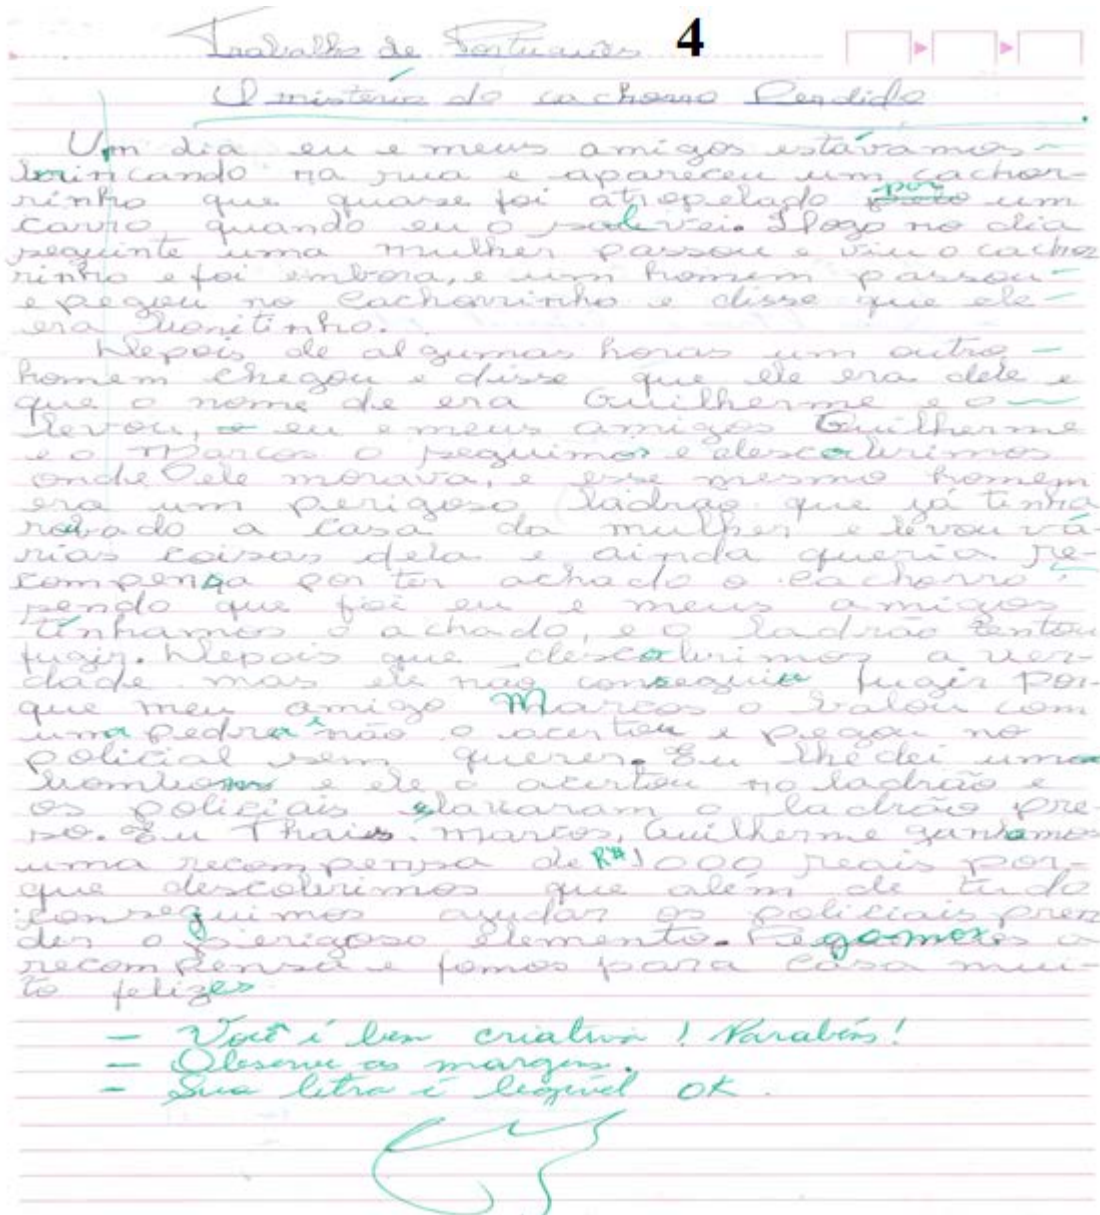 Trabalho de Português 4
O mistério do cachorro Perdido
Um dia eu e meus amigos estávamos
brincando na rua e apareceu um cachor-
rinho que quase foi atropelado por um
carro, quando eu o salvei. Logo no dia
seguinte uma mulher passou e viu o cachor
rinho e foi embora, e um homem passou
e pegou no cachorrinho e disse que ele
era bonitinho.
Depois de algumas horas um outro
homem chegou e disse que ele era dele e
que o nome de era Guilherme e o
levou, e eu e meus amigos Guilherme
e o Marcos o seguimos e descobrimos
onde ele morava, e esse mesmo homem
era um perigoso ladrão que já tinha
roubado a casa da mulher e levou vá-
rias coisas dela e ainda queria re-
compensa por ter achado o cachorro
sendo que foi eu e meus amigos
tínhamos o achado, e o ladrão tentou
fugir. Depois que descobrimos a ver-
dade mas ele não conseguiu fugir por-
que meu amigo Marcos o balou com
uma pedra e não o acertou e pegou no
policial sem querer. Eu lhe dei uma
e ele o acertou no ladrão e
os policiais o ladrão pre-
so. Eu Thais, Marcos, Guilherme ganhamos
uma recompensa de R$ 1000 reais por-
que descobrimos que além de tudo
conseguimos ajudar os policiais pren
der o perigoso elemento. Pegamos a
recompensa e fomos para casa mui-
to felizes
- Você é bem criativa! Parabéns!
- Observe as margens.
- Sua letra é legível OK.